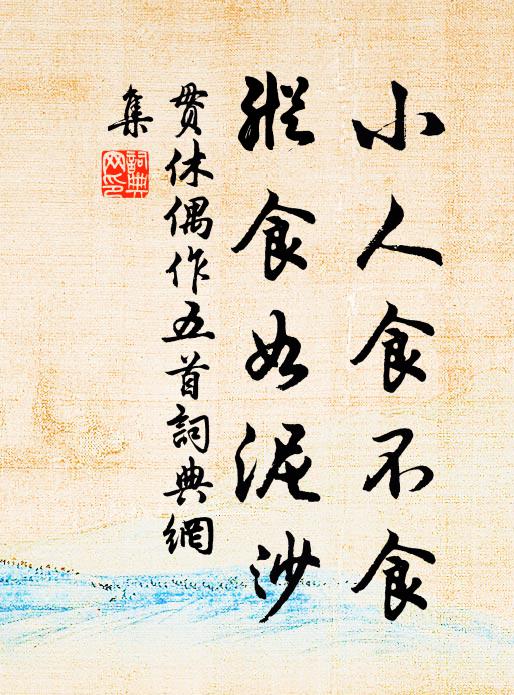 小人食不食
縱食如泥沙
貫休偶作五首詞典網
集
詞典
网印